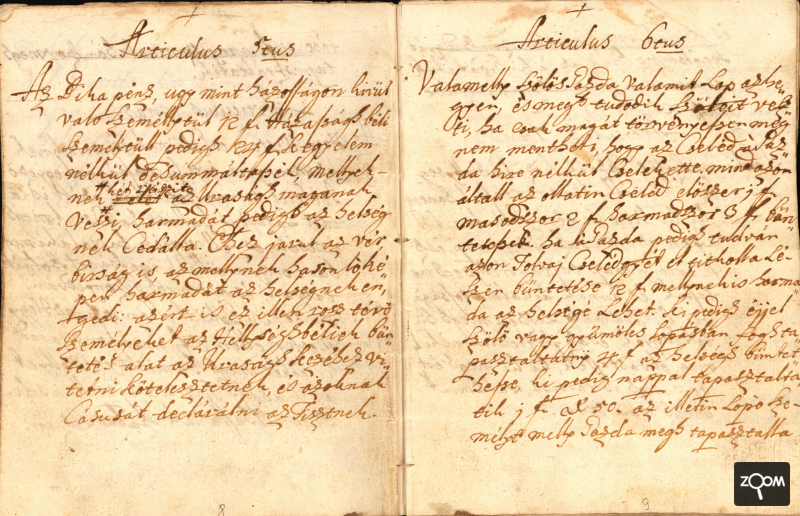 Articulus 5tus
Az Diha pénz, ugy mint házosságon kivül
való személlytül 12 f. Házasságh béli
személytüll pedigh 24 f. kegyelem
nélkül desummáltassék, mellyek-
nek két részit az Uraságh magának
veszi, harmadát pedigh az helség-
nek Cedállya. Ehez járul az vér
birság is, az mellynek hason lóké,,
pen harmadát az helségnek en,,
gedi: azért is ez illen rosz tévő
személyeket az Helységhbéliek bün,,
tetés alat az Uraságh kezéhez vi,,
tetni köteleztetnek, és azoknak
Casusát declarálni az Tisztnek.
8
Articulus 6tus
Valamelly szőlős Gazda valamit Lop az he,,
gyen, és megh tudódik, Szőleit vesz
ti, ha csak magát törvényessen még
nem mentheti, hogy az Cselédi Gaz
da hire nélkül Cselekette. mindazon
által az ollatin Cseléd először 1 f.
masodszor 2 f. harmadszor 3 f. bün,,
tetessék. ha a Gazda pedigh tudván
azon Tolvaj Cselédgyét el titkolta Lé-
szen büntetése 12 f. melynek is harma
da az helségé Lehet. Ki pedigh éjjel
szőlő vagy gyümölcs lopásban fogh ta,,
pasztaltatny 4 f. az helségh büntet
hesse, ki pedig náppal tapasztalta
tik 1 f. d. 50. az illetin Lopo sze-
mélyt melly Gazda megh tapasztalta
9
ZOOM